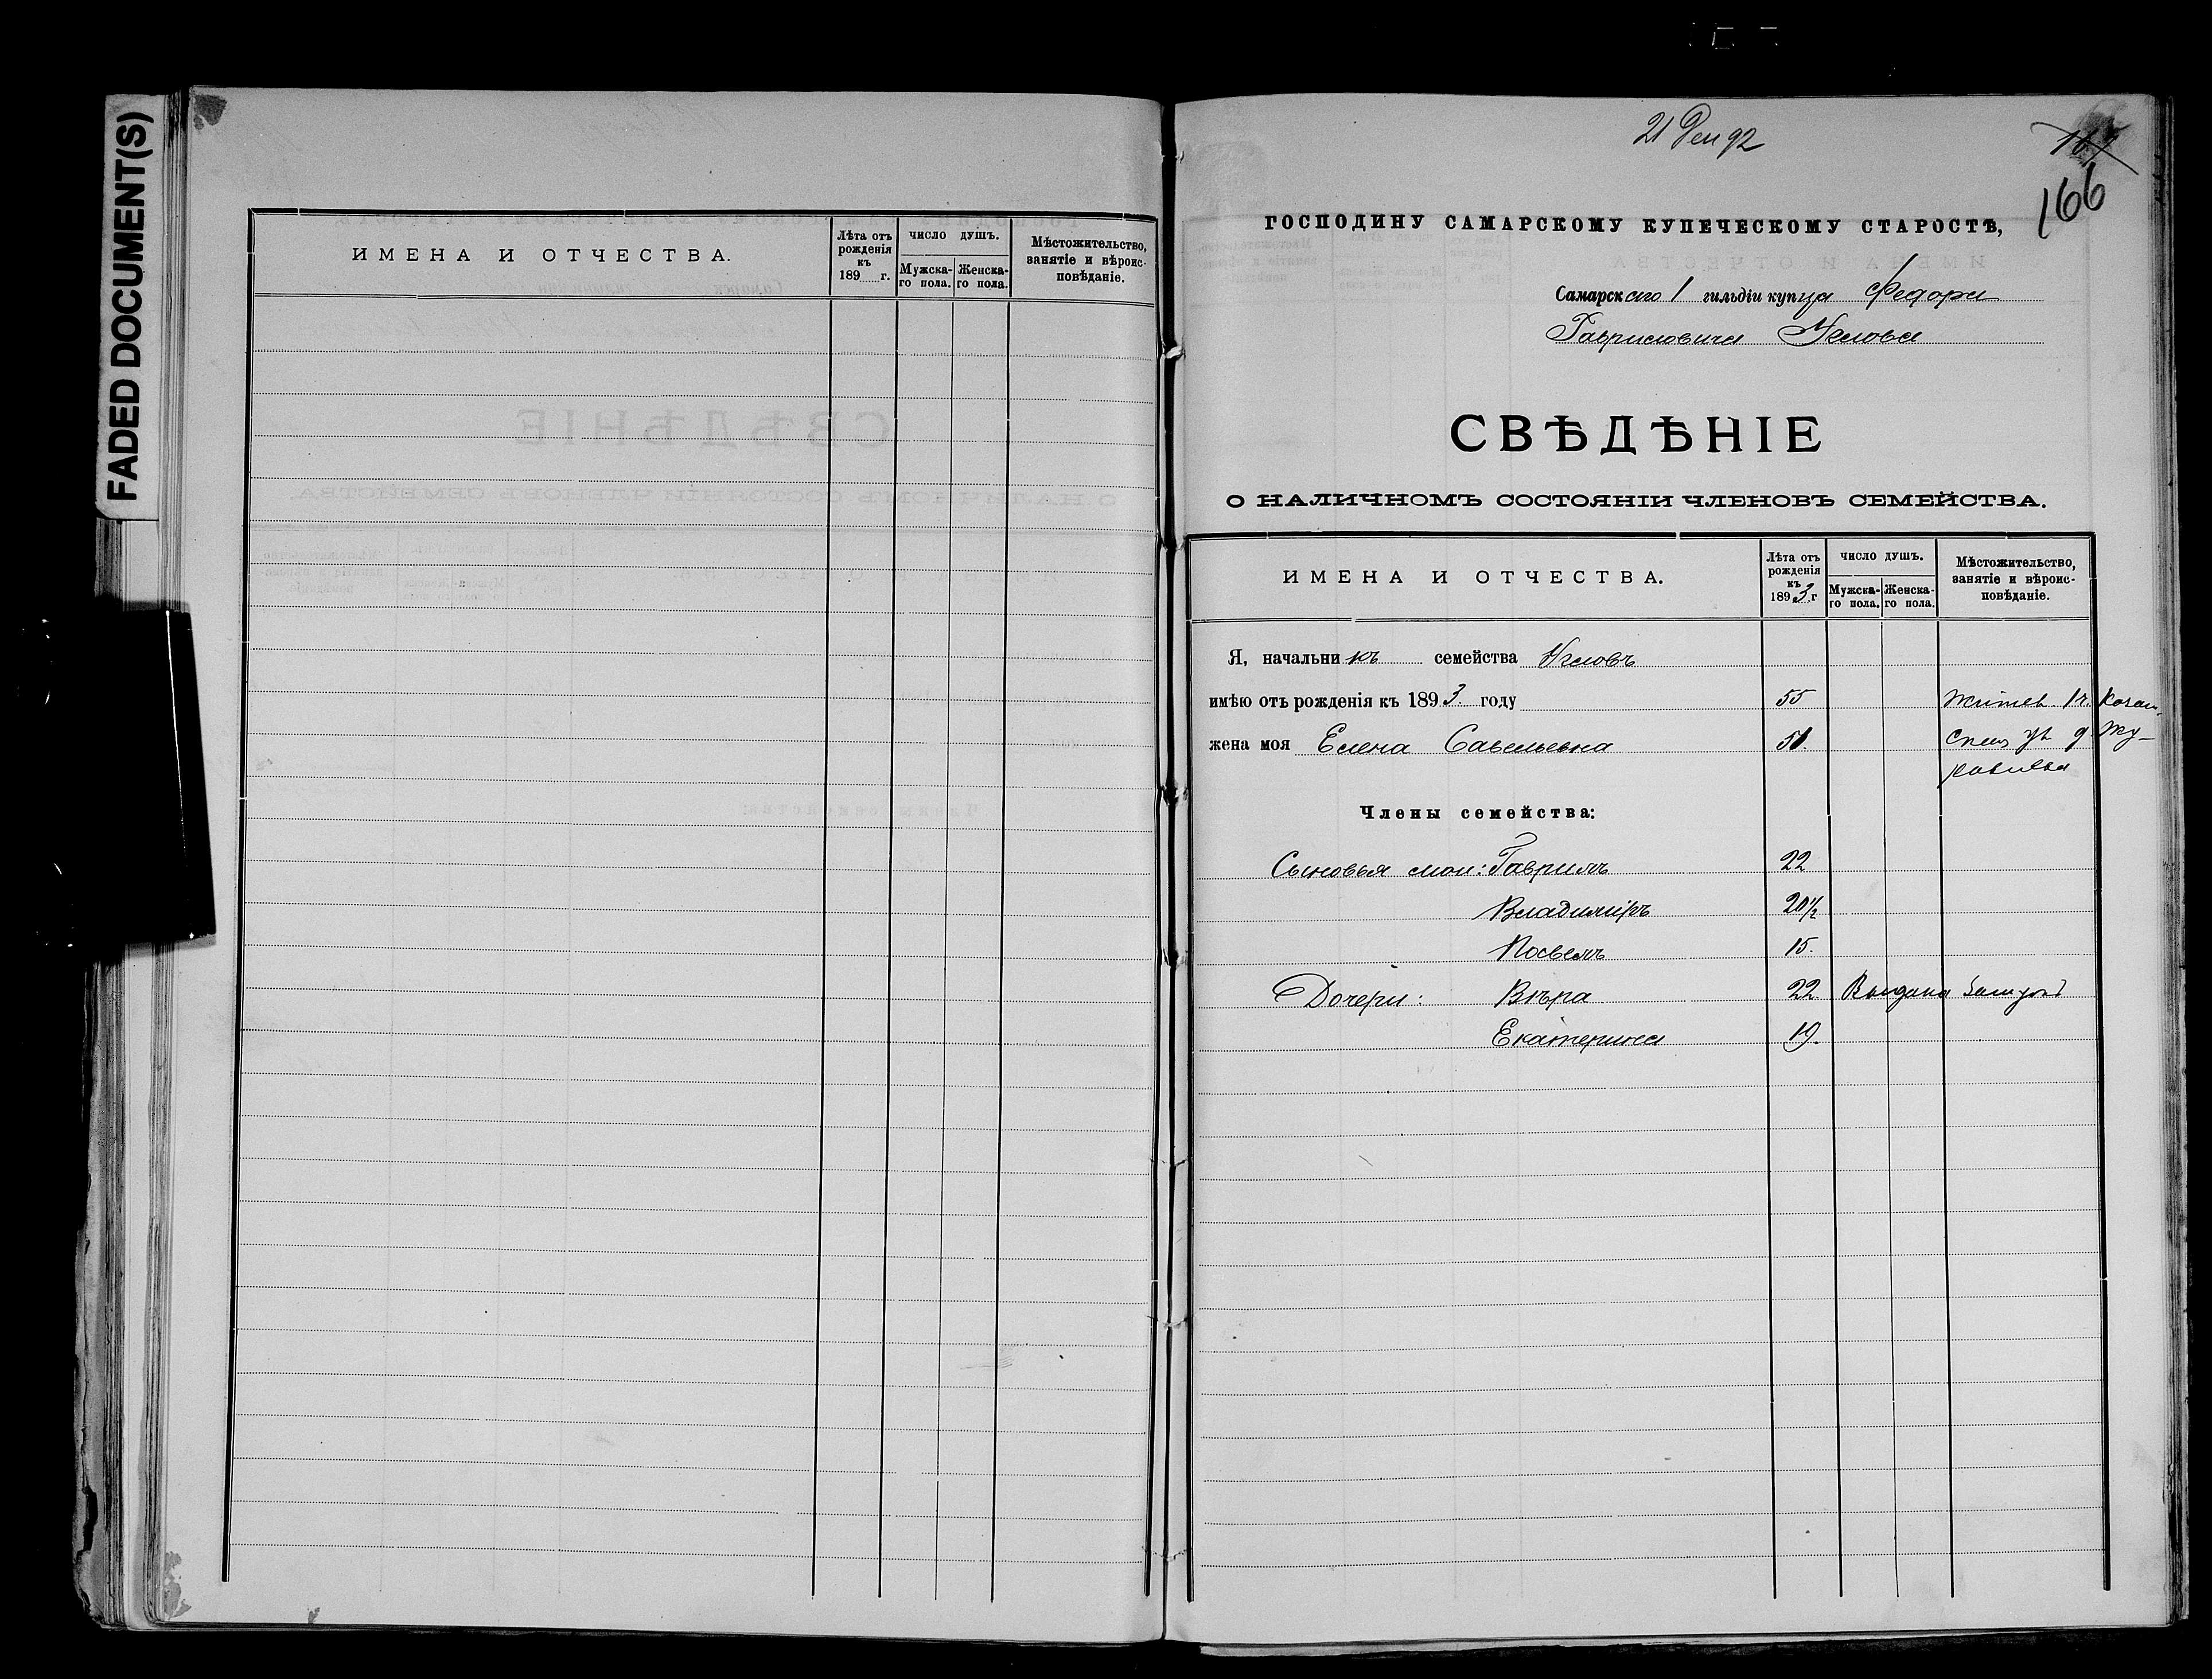 FADED DOCUMENT(S)
ИМЕНА И ОТЧЕСТВА.
Лѣта отъ рожденія къ 189 г.
ЧИСЛО ДУШЪ.
Мужска-го пола.
Женска-го пола.
Мѣстожительство, занятіе и вѣроис-повѣданіе.
21 Дек 92
166
ГОСПОДИНУ САМАРСКОМУ КУПЕЧЕСКОМУ СТАРОСТѢ,
Самарскаго 1 гильдіи купца Федора
Гавриловича Углова
СВѢДѢНІЕ
О НАЛИЧНОМЪ СОСТОЯНІИ ЧЛЕНОВЪ СЕМЕЙСТВА.
ИМЕНА И ОТЧЕСТВА.
Лѣта отъ рожденія къ 1893 г
ЧИСЛО ДУШЪ.
Мужска-го пола.
Женска-го пола.
Мѣстожительство, занятіе и вѣроис-повѣданіе.
Я, начальникъ семейства Угловъ
имѣю отъ рожденія къ 1893 году 55 1 ч.
жена моя Елена Савельевна 51. д. Жу-
равлева
Члены семейства:
Сыновья мои: Гавріилъ 22
Владиміръ 20 1/2
Павелъ 15.
Дочери: Вѣра 22 Выдана замужъ
Екатерина 19.